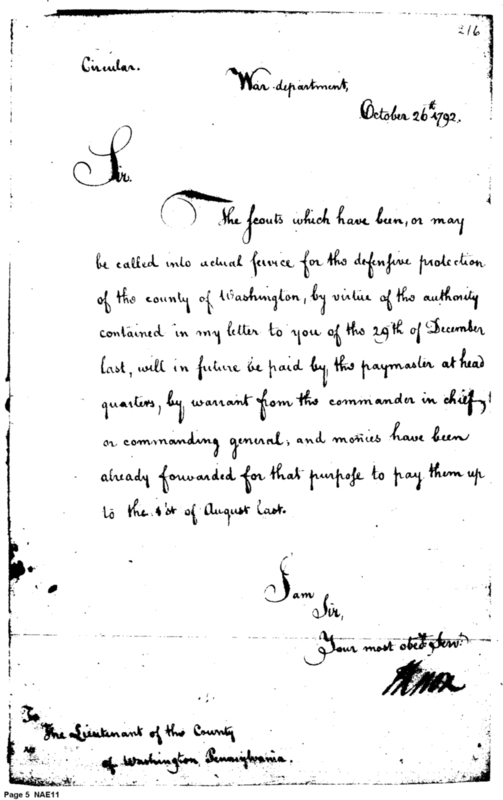 216
Circular.
War department,
October 26th 1792.
Sir.
The scouts which have been, or may
be called into actual service for the defensive protection
of the county of Washington, by virtue of the authority
contained in my letter to you of the 29th of December
last, will in future be paid by the paymaster at head
quarters, by warrant from the commander in chief,
or commanding general; and monies have been
already forwarded for that purpose to pay them up
to the 1st of August last.
I am
Sir,
Your most obedt Servt
HKnox
To
The Lieutenant of the County
of Washington, Pennsylvania.
Page 5 NAE11